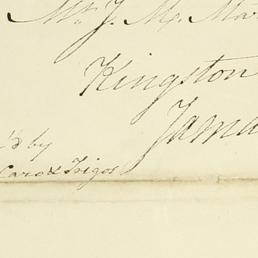 Mr. J. M. Mor
Kingston
Jama
'd by
Caro & Trigos